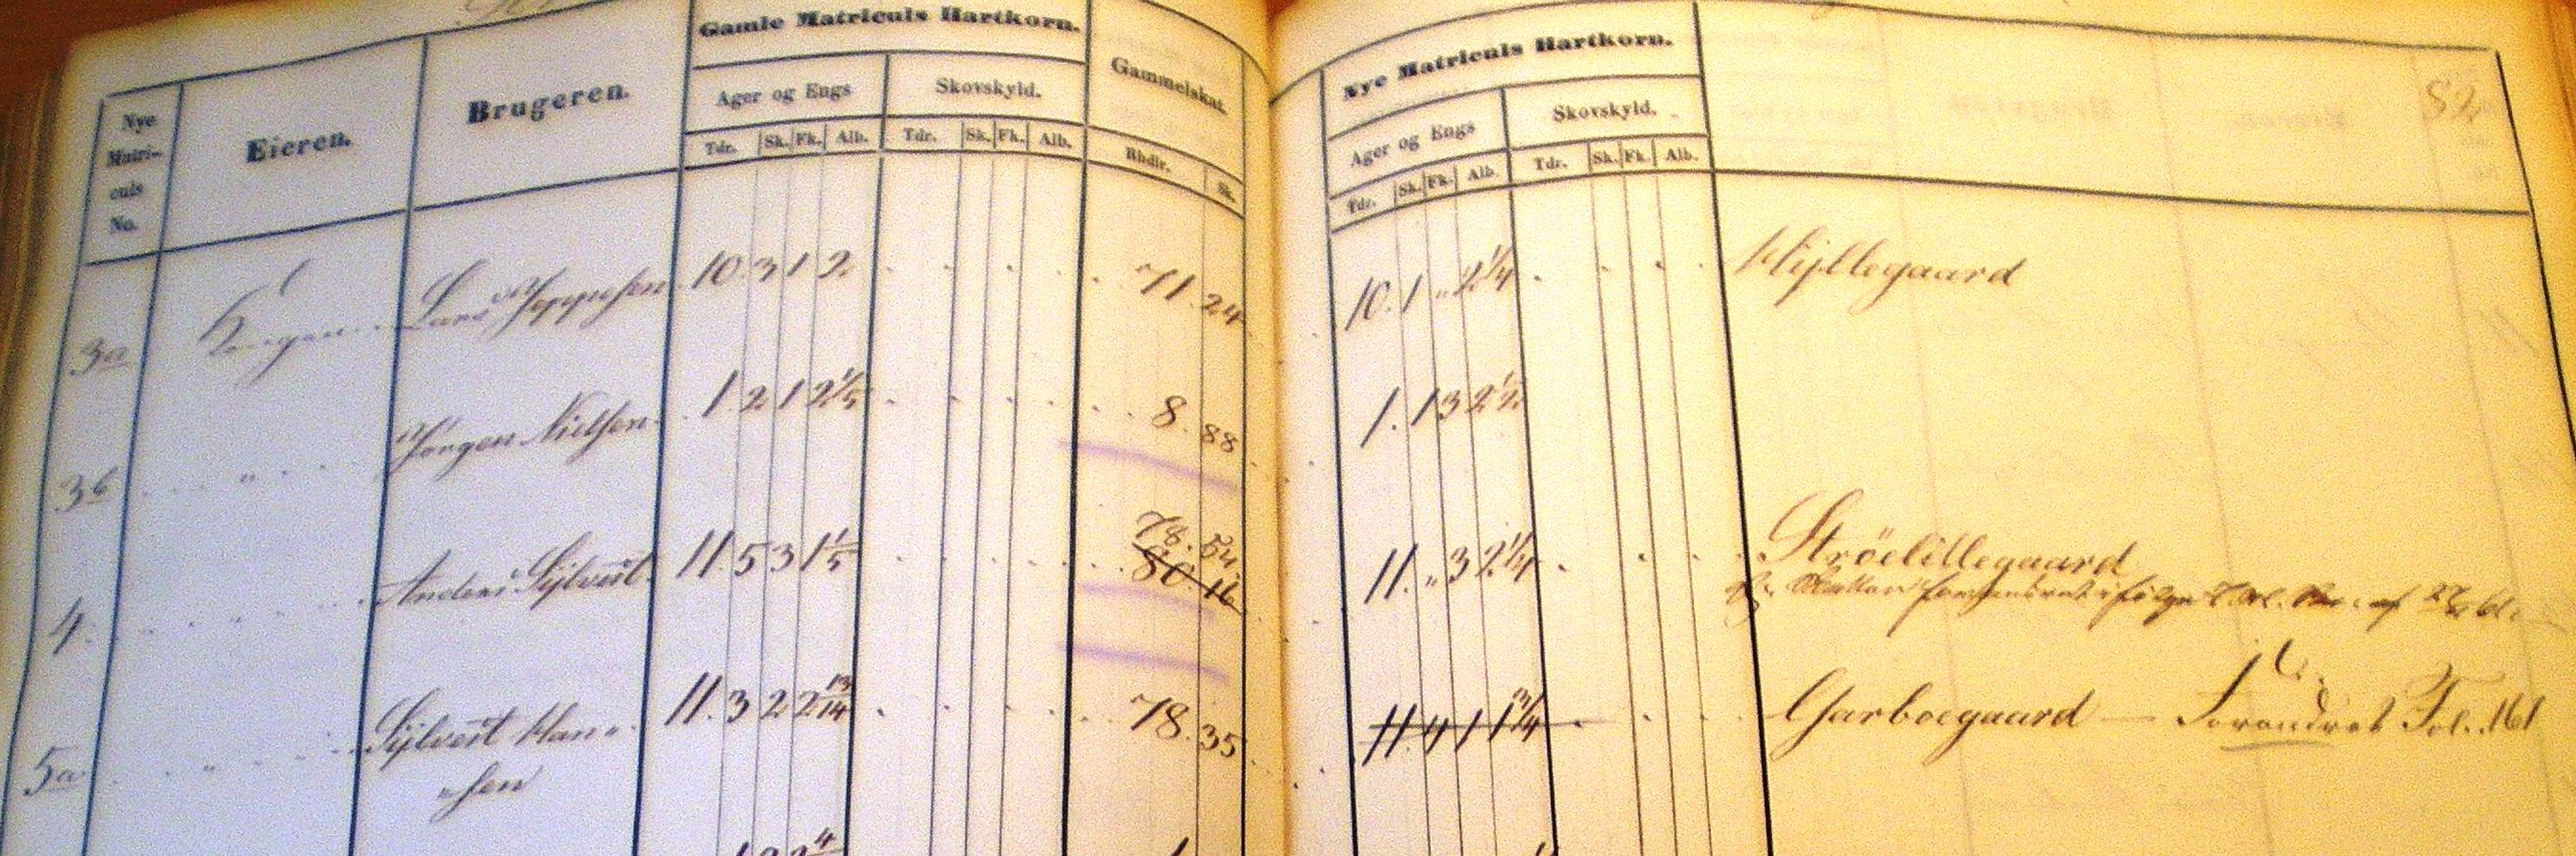 Gamle Matriculs Hartkorn.
Nye Matriculs Hartkorn.
Nye Matri- culs No.
Eieren.
Brugeren.
Ager og Engs
Skovskyld.
Gammelskat.
Ager og Engs
Skovskyld.
82
Tdr. Sk. Fk. Alb. Tdr. Sk. Fk. Alb. Rbdlr. Sk.
Tdr. Sk. Fk. Alb. Tdr. Sk. Fk. Alb.
3a Kongen Lars Jeppesen 10. 3 1 2 71. 24 10. 1 „ 2 1/4 Hyllegaard
3b „ Jørgen Nielsen 1. 2 1 2 1/5 8. 88 1. 1 3 2 1/2
78. 84.
4. „ Anders Sylvest 11. 5 3 1 1/5 80. 16 11. „ 3 2 1/4 Ströelillegaard
Skatten forandret ifølge af
5a „ Sylvest Han= 11. 3 2 2 13/14 78. 35 11. 4 1 1 3/4 Garboegaard — Forandret Fol. 161
=sen